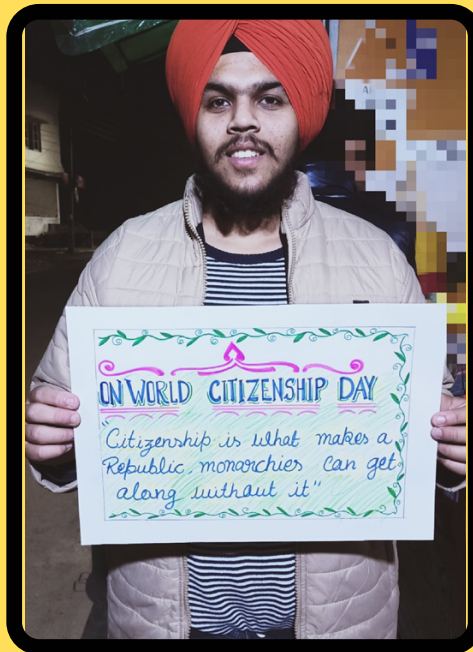 ON WORLD CITIZENSHIP DAY
"Citizenship is what makes a
Republic. monarchies can get
along without it"